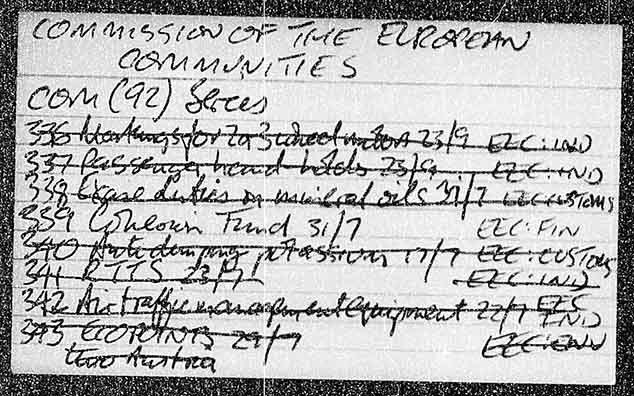 COMMISSION OF THE EUROPEAN
COMMUNITIES
COM (92) Series
336 Markings for 2 or 3 wheel motors 23/9 EEC: IND
337 Passenger hand holds 23/9 EEC: IND
338 Excise duties on mineral oils 31/7 EEC CUSTOMS
339 Cohesion Fund 31/7 EEC: FIN
340 Anti dumping potassium 17/7 EEC: CUSTOMS
341 RTTS 23/7 EEC: IND
342 Air traffic management equipment 22/7 EEC IND
343 ECOPOINTS 29/7 EEC: ENV
thro Austria